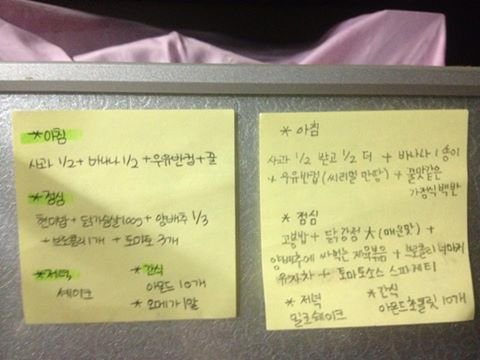 *아침
사과 1/2 + 바나나 1/2 + 우유반컵 + 꿀
*점심
현미밥 + 닭가슴살 100g + 양배추 1/3
+ 브로콜리 1개 + 토마토 3개
*저녁
쉐이크
*간식
아몬드 10개
* 오메가 1알
* 아침
사과 1/2 받고 1/2 더 + 바나나 1송이
+ 우유반컵 (씨리얼 만땅) + 꿀맛같은
가정식 백반
* 점심
고봉밥 + 닭강정 大 (매운맛) +
양배추에 싸먹는 제육볶음 + 브로콜리 너마저
유자차 + 토마토소스 스파게티
* 저녁
밀크쉐이크
* 간식
아몬드초콜릿 10개